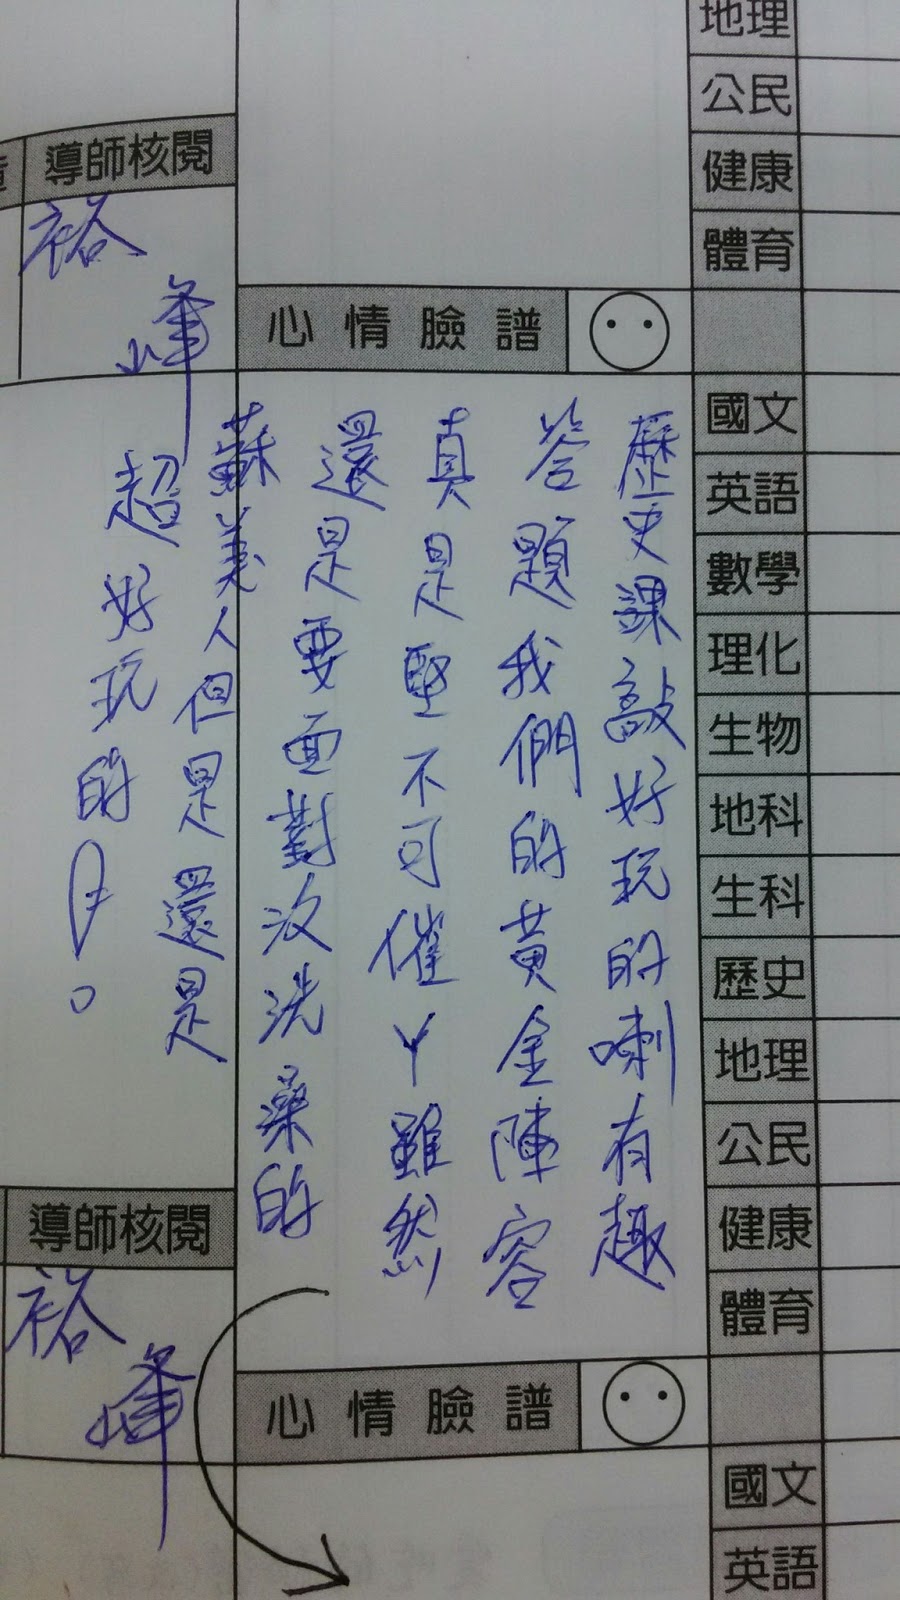 地理
公民
健康
體育
國文
英語
數學
理化
生物
地科
生科
歷史
地理
公民
健康
體育
國文
英語
心情臉譜
歷史課敲好玩的喇有趣
答題我們的黃金陣容
真是堅不可催ㄚ雖然
還是要面對沒洗澡的
蘇美人但是還是
超好玩的
心情臉譜
導師核閱
裕峰
導師核閱
裕峰